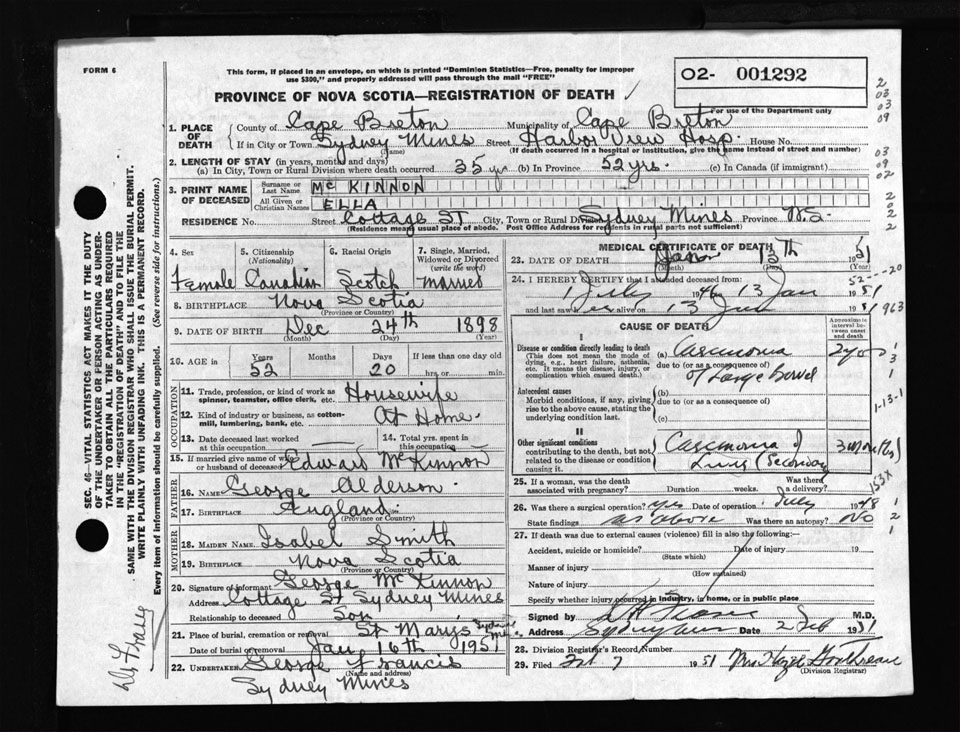 FORM 6
This form, if placed in an envelope, on which is printed "Dominion Statistics—Free, penalty for improper
use $300," and properly addressed will pass through the mail "FREE"
PROVINCE OF NOVA SCOTIA—REGISTRATION OF DEATH
02- 001292
For use of the Department only
1. PLACE OF DEATH
County of Cape Breton Municipality of Cape Breton
If in City or Town Sydney Mines Street Harbor View Hosp. House No.
(Name) (If death occurred in a hospital or institution, give the name instead of street and number)
2. LENGTH OF STAY (in years, months and days)
(a) In City, Town or Rural Division where death occurred 35 yr (b) In Province 52 yrs. (c) In Canada (if immigrant)
3. PRINT NAME OF DECEASED
Surname or Last Name McKINNON
All Given or Christian Names ELLA
RESIDENCE No. Street Cottage ST City, Town or Rural Division Sydney Mines Province N.S.
(Residence means usual place of abode. Post Office Address for residents in rural parts not sufficient)
4. Sex 5. Citizenship (Nationality) 6. Racial Origin 7. Single, Married, Widowed or Divorced (write the word)
Female Canadian Scotch Married
8. BIRTHPLACE Nova Scotia
(Province or Country)
9. DATE OF BIRTH Dec 24th 1898
(Month) (Day) (Year)
10. AGE in Years Months Days If less than one day old
52 20 hrs. or min.
OCCUPATION
11. Trade, profession, or kind of work as spinner, teamster, office clerk, etc. Housewife
12. Kind of industry or business, as cotton-mill, lumbering, bank, etc. At Home.
13. Date deceased last worked at this occupation
14. Total yrs. spent in this occupation
15. If married give name of wife or husband of deceased Edward McKinnon
FATHER
16. NAME George Alderson.
17. BIRTHPLACE England.
(Province or Country)
MOTHER
18. MAIDEN NAME Isabel Smith
19. BIRTHPLACE Nova Scotia
(Province or Country)
20. Signature of informant George McKinnon
Address Cottage St Sydney Mines
Relationship to deceased Son
21. Place of burial, cremation or removal St Marys Sydney Mines
Date of burial or removal Jan 16th 1951
22. UNDERTAKER George Francis
(Name and address)
Sydney Mines
MEDICAL CERTIFICATE OF DEATH
23. DATE OF DEATH 13th 1951
(Month) (Day) (Year)
24. I HEREBY CERTIFY that I attended deceased from:
1 July 1946 13 Jan 1951
and last saw her alive on 13 Jan 1951
CAUSE OF DEATH
Approximate interval between onset and death
I
Disease or condition directly leading to death
(This does not mean the mode of dying, e.g., heart failure, asthenia, etc. It means the disease, injury, or complication which caused death.)
(a) Carcinoma
due to (or as a consequence of)
of Large bowel
Antecedent causes
Morbid conditions, if any, giving rise to the above cause, stating the underlying condition last.
(b)
due to (or as a consequence of)
(c)
II
Other significant conditions
contributing to the death, but not related to the disease or condition causing it.
Carcinoma of Lung (Secondary) 3 months
25. If a woman, was the death associated with pregnancy? Duration weeks. Was there a delivery?
26. Was there a surgical operation? yes Date of operation July 1948
State findings as above Was there an autopsy? No
27. If death was due to external causes (violence) fill in also the following:—
Accident, suicide or homicide? Date of injury 19
(State which)
Manner of injury
(How sustained)
Nature of injury
Specify whether injury occurred in industry, in home, or in public place
Signed by M.D.
Address Sydney Mines Date 2 Feb 1951
28. Division Registrar's Record Number
29. Filed Feb. 7 1951 Mrs Hazel
(Division Registrar)
SEC. 46- VITAL STATISTICS ACT MAKES IT THE DUTY
OF THE UNDERTAKER OR PERSON ACTING AS UNDER-
TAKER TO OBTAIN ALL THE PARTICULARS REQUIRED
IN THE "REGISTRATION OF DEATH" AND TO FILE THE
SAME WITH THE DIVISION REGISTRAR WHO SHALL ISSUE THE BURIAL PERMIT.
WRITE PLAINLY WITH UNFADING INK. THIS IS A PERMANENT RECORD.
Every item of information should be carefully supplied. (See reverse side for instructions.)